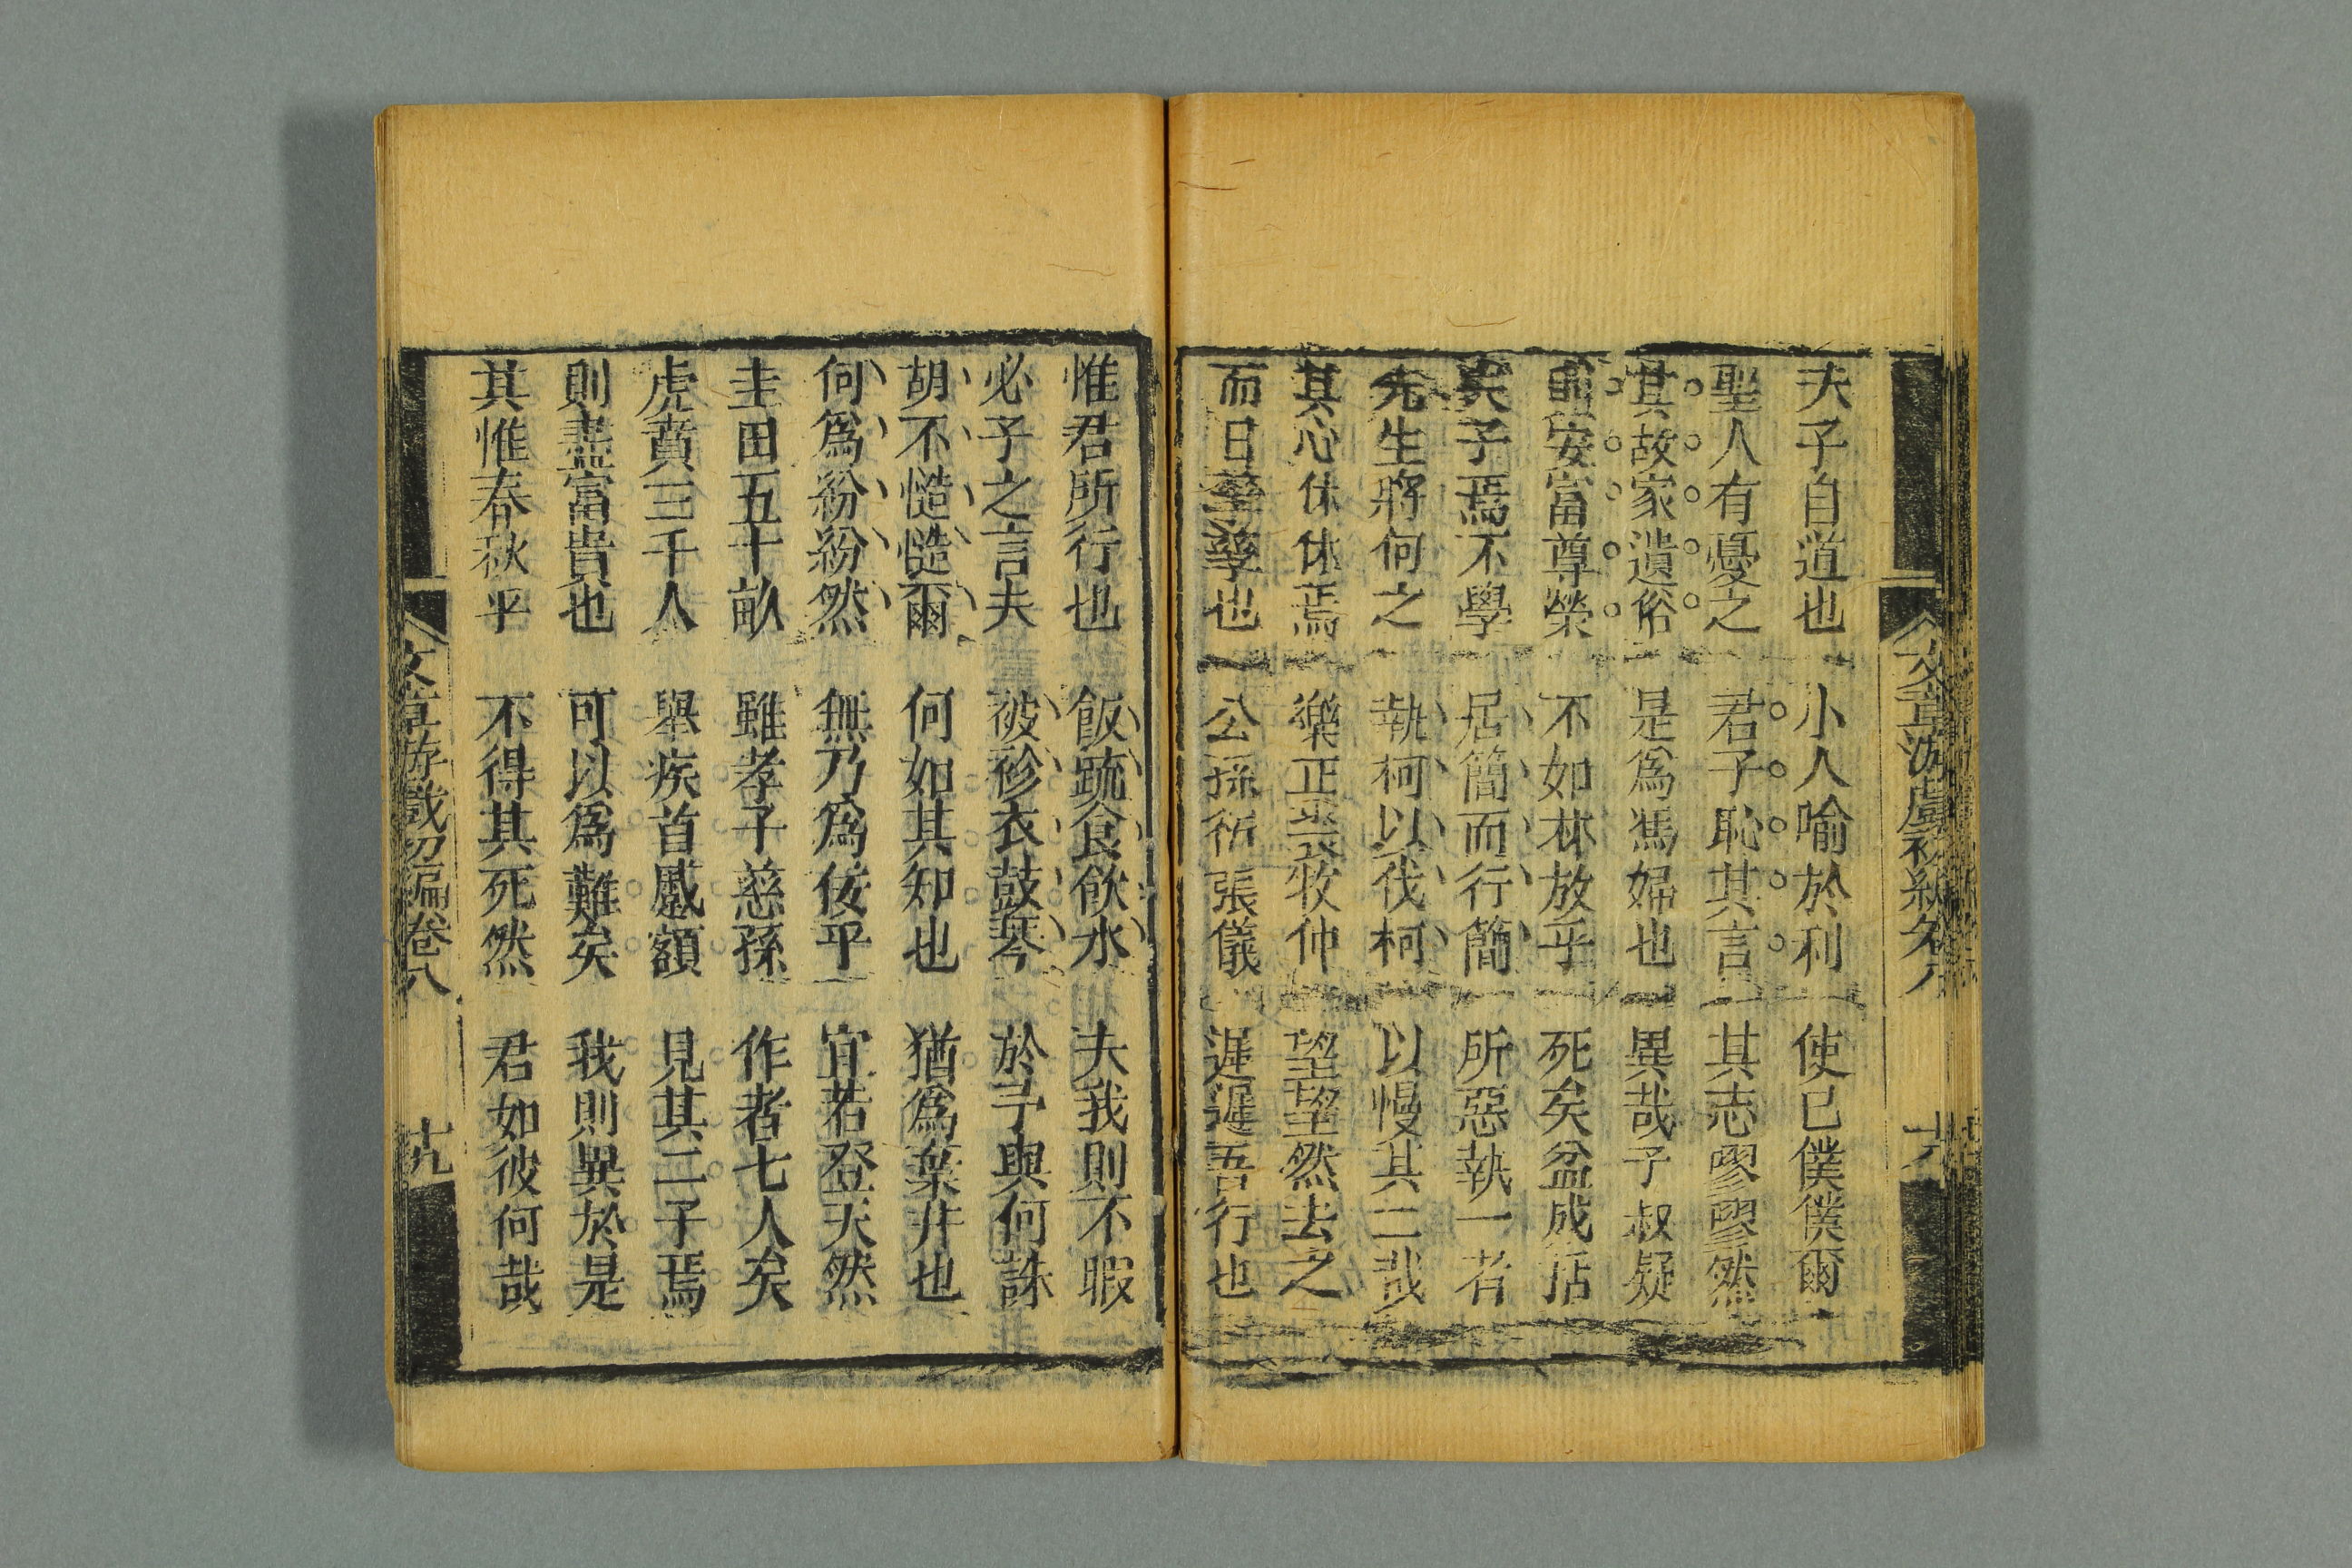 夫子自道也　小人喻於利　使已僕僕爾
聖人有憂之　君子恥其言　其志嘐嘐然
其故家遺俗　是爲馮婦也　異哉子叔疑
則安富尊榮　不如林放乎　死矣盆成括
矣子焉不學　居簡而行簡　所惡執一者
先生將何之　執柯以伐柯　以慢其二哉
其心休休焉　樂正裘牧仲　望望然去之
而日孳孳也　公孫衍張儀　遲遲吾行也
惟君所行也　飯疏食飮水　夫我則不暇
必子之言夫　被袗衣鼓琴　於予與何誅
胡不慥慥爾　何如其知也　猶爲棄井也
何爲紛紛然　無乃爲佞乎　宜若登天然
圭田五十畝　雖孝子慈孫　作者七人矣
虎賁三千人　舉疾首蹙額　見其二子焉
則盡富貴也　可以爲難矣　我則異於是
其惟春秋乎　不得其死然　君如彼何哉
文章游戲初編卷八　十九